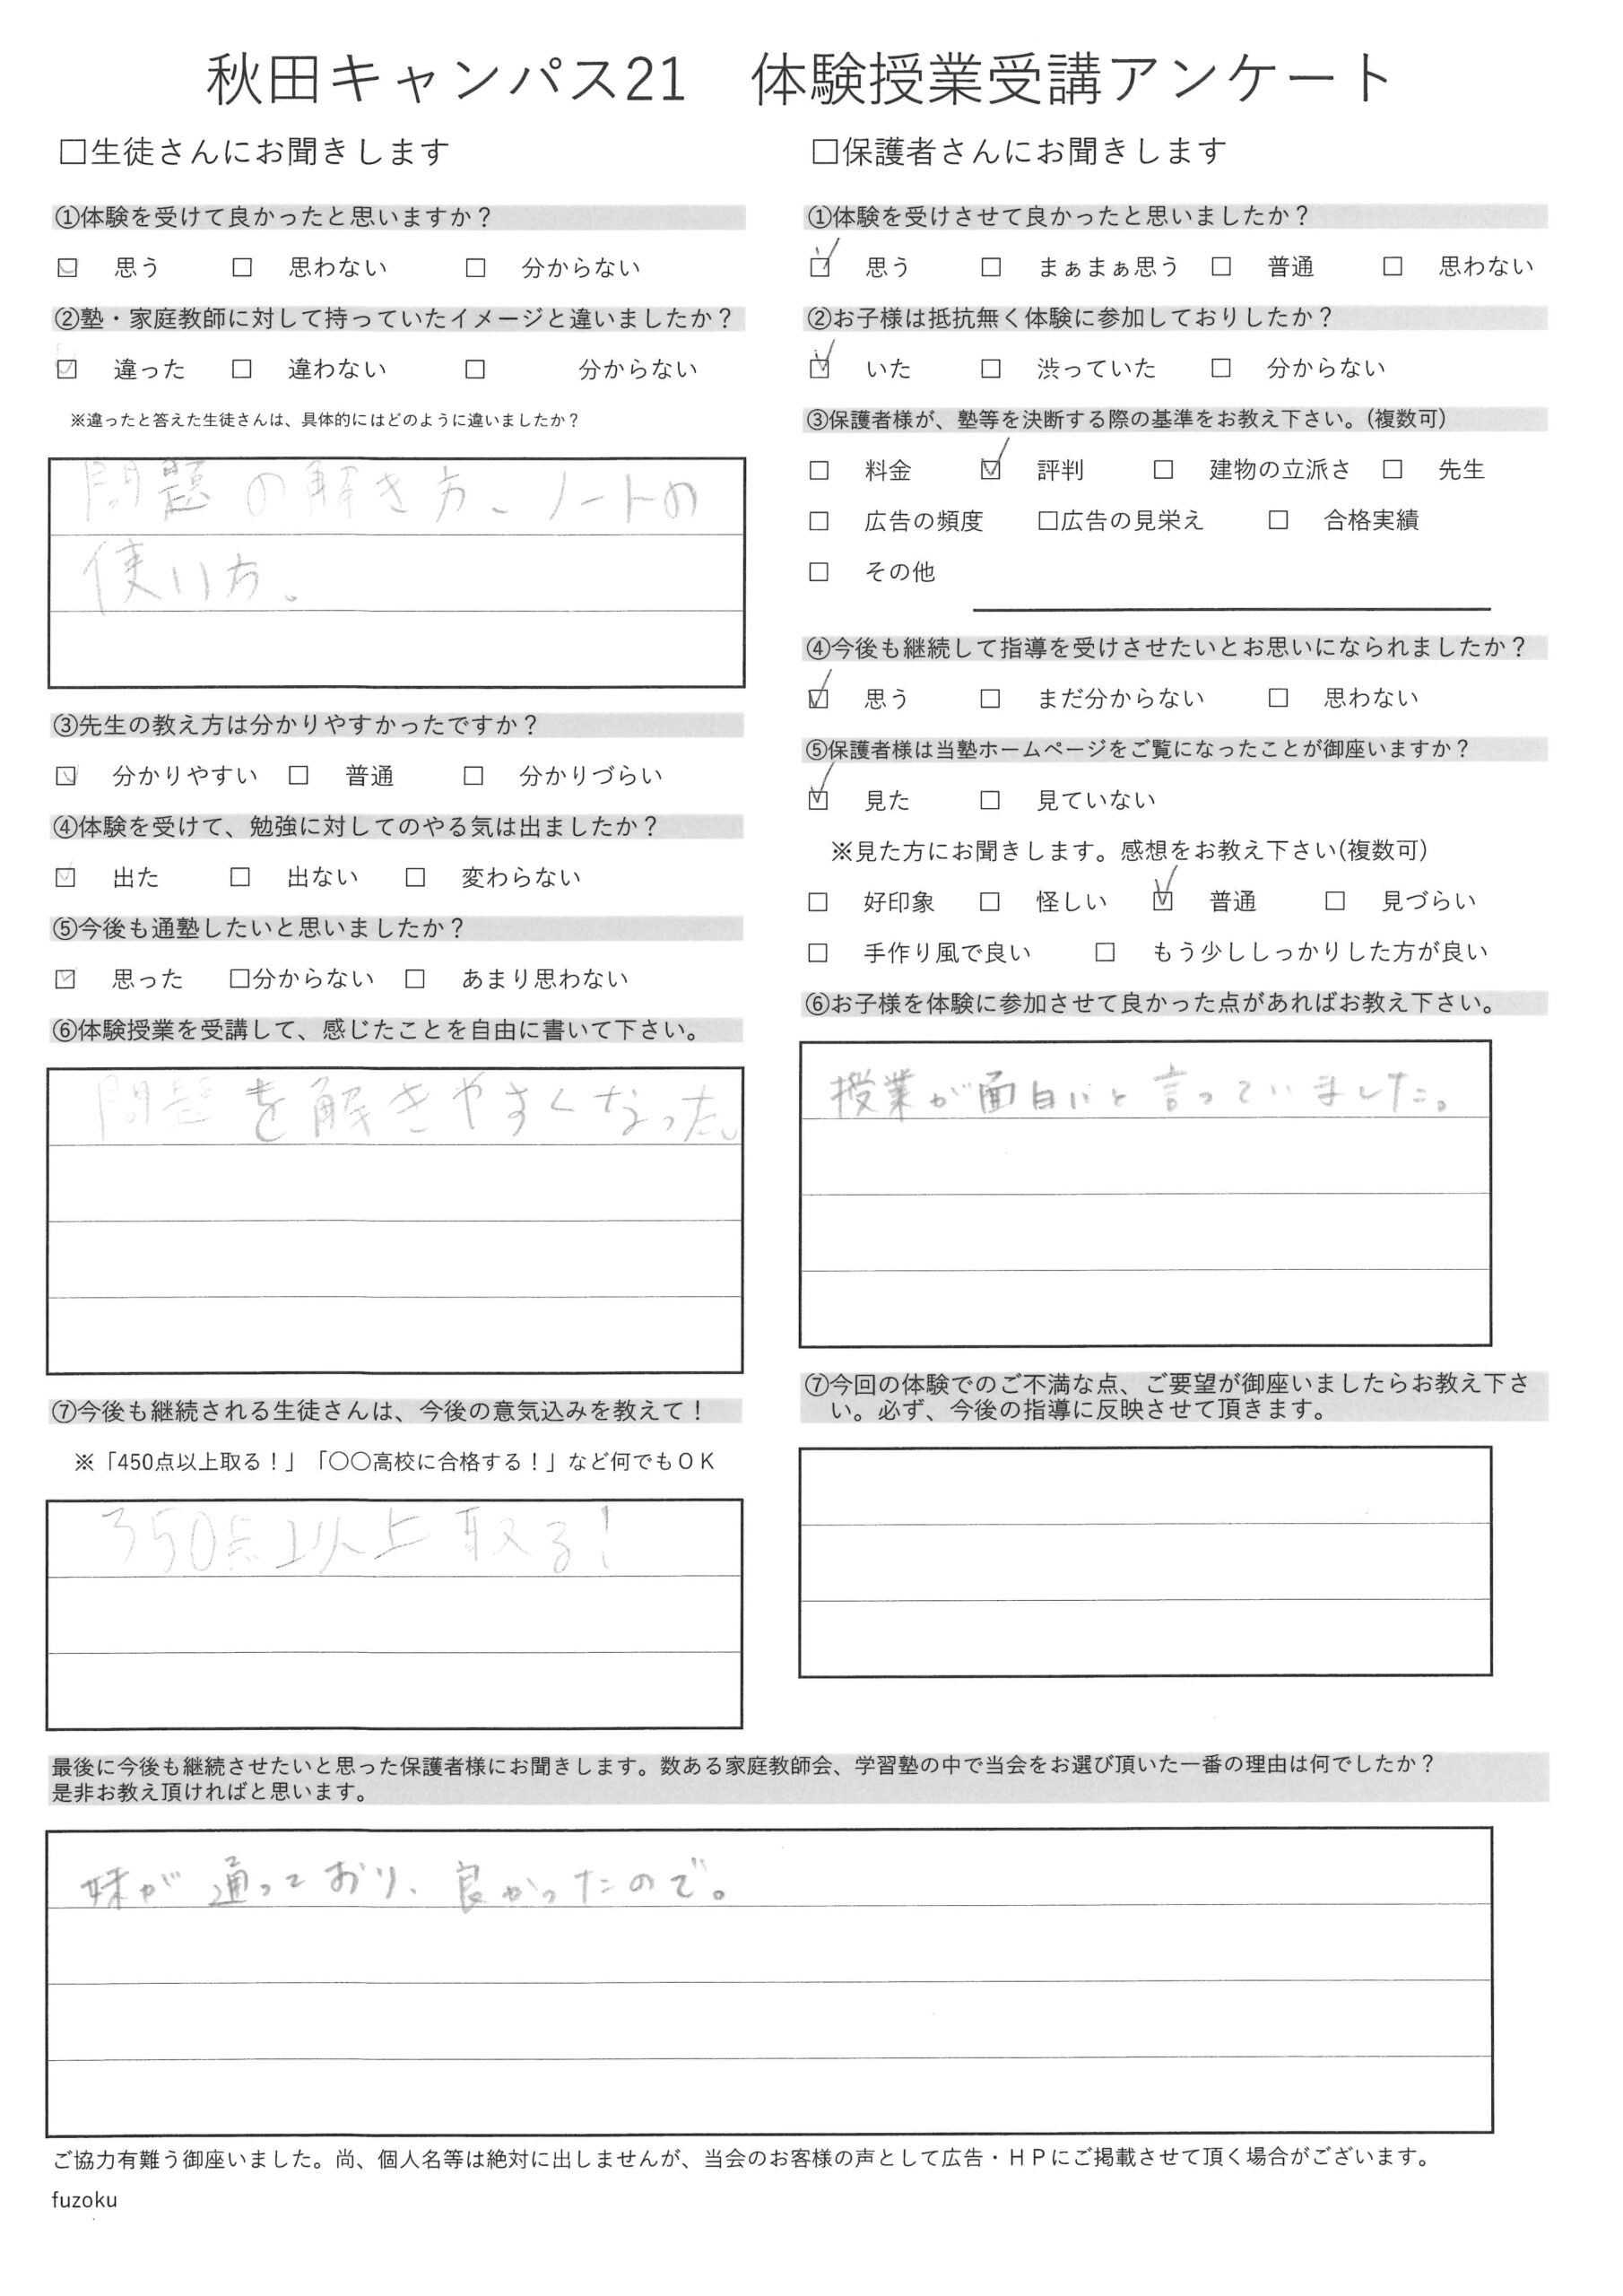 秋田キャンパス21　体験授業受講アンケート
□生徒さんにお聞きします
①体験を受けて良かったと思いますか？
☑ 思う □ 思わない □ 分からない
②塾・家庭教師に対して持っていたイメージと違いましたか？
☑ 違った □ 違わない □ 分からない
※違ったと答えた生徒さんは、具体的にはどのように違いましたか？
問題の解き方、ノートの
使い方。
③先生の教え方は分かりやすかったですか？
☑ 分かりやすい □ 普通 □ 分かりづらい
④体験を受けて、勉強に対してのやる気は出ましたか？
☑ 出た □ 出ない □ 変わらない
⑤今後も通塾したいと思いましたか？
☑ 思った □分からない □ あまり思わない
⑥体験授業を受講して、感じたことを自由に書いて下さい。
問題を解きやすくなった。
⑦今後も継続される生徒さんは、今後の意気込みを教えて！
※「450点以上取る！」「〇〇高校に合格する！」など何でもＯＫ
350点以上取る！
□保護者さんにお聞きします
①体験を受けさせて良かったと思いましたか？
☑ 思う □ まぁまぁ思う □ 普通 □ 思わない
②お子様は抵抗無く体験に参加しておりしたか？
☑ いた □ 渋っていた □ 分からない
③保護者様が、塾等を決断する際の基準をお教え下さい。(複数可)
□ 料金 ☑ 評判 □ 建物の立派さ □ 先生
□ 広告の頻度 □広告の見栄え □ 合格実績
□ その他
④今後も継続して指導を受けさせたいとお思いになられましたか？
☑ 思う □ まだ分からない □ 思わない
⑤保護者様は当塾ホームページをご覧になったことが御座いますか？
☑ 見た □ 見ていない
※見た方にお聞きします。感想をお教え下さい(複数可)
□ 好印象 □ 怪しい ☑ 普通 □ 見づらい
□ 手作り風で良い □ もう少ししっかりした方が良い
⑥お子様を体験に参加させて良かった点があればお教え下さい。
授業が面白いと言っていました。
⑦今回の体験でのご不満な点、ご要望が御座いましたらお教え下さ
い。必ず、今後の指導に反映させて頂きます。
最後に今後も継続させたいと思った保護者様にお聞きします。数ある家庭教師会、学習塾の中で当会をお選び頂いた一番の理由は何でしたか？
是非お教え頂ければと思います。
妹が通っており、良かったので。
ご協力有難う御座いました。尚、個人名等は絶対に出しませんが、当会のお客様の声として広告・ＨＰにご掲載させて頂く場合がございます。
fuzoku